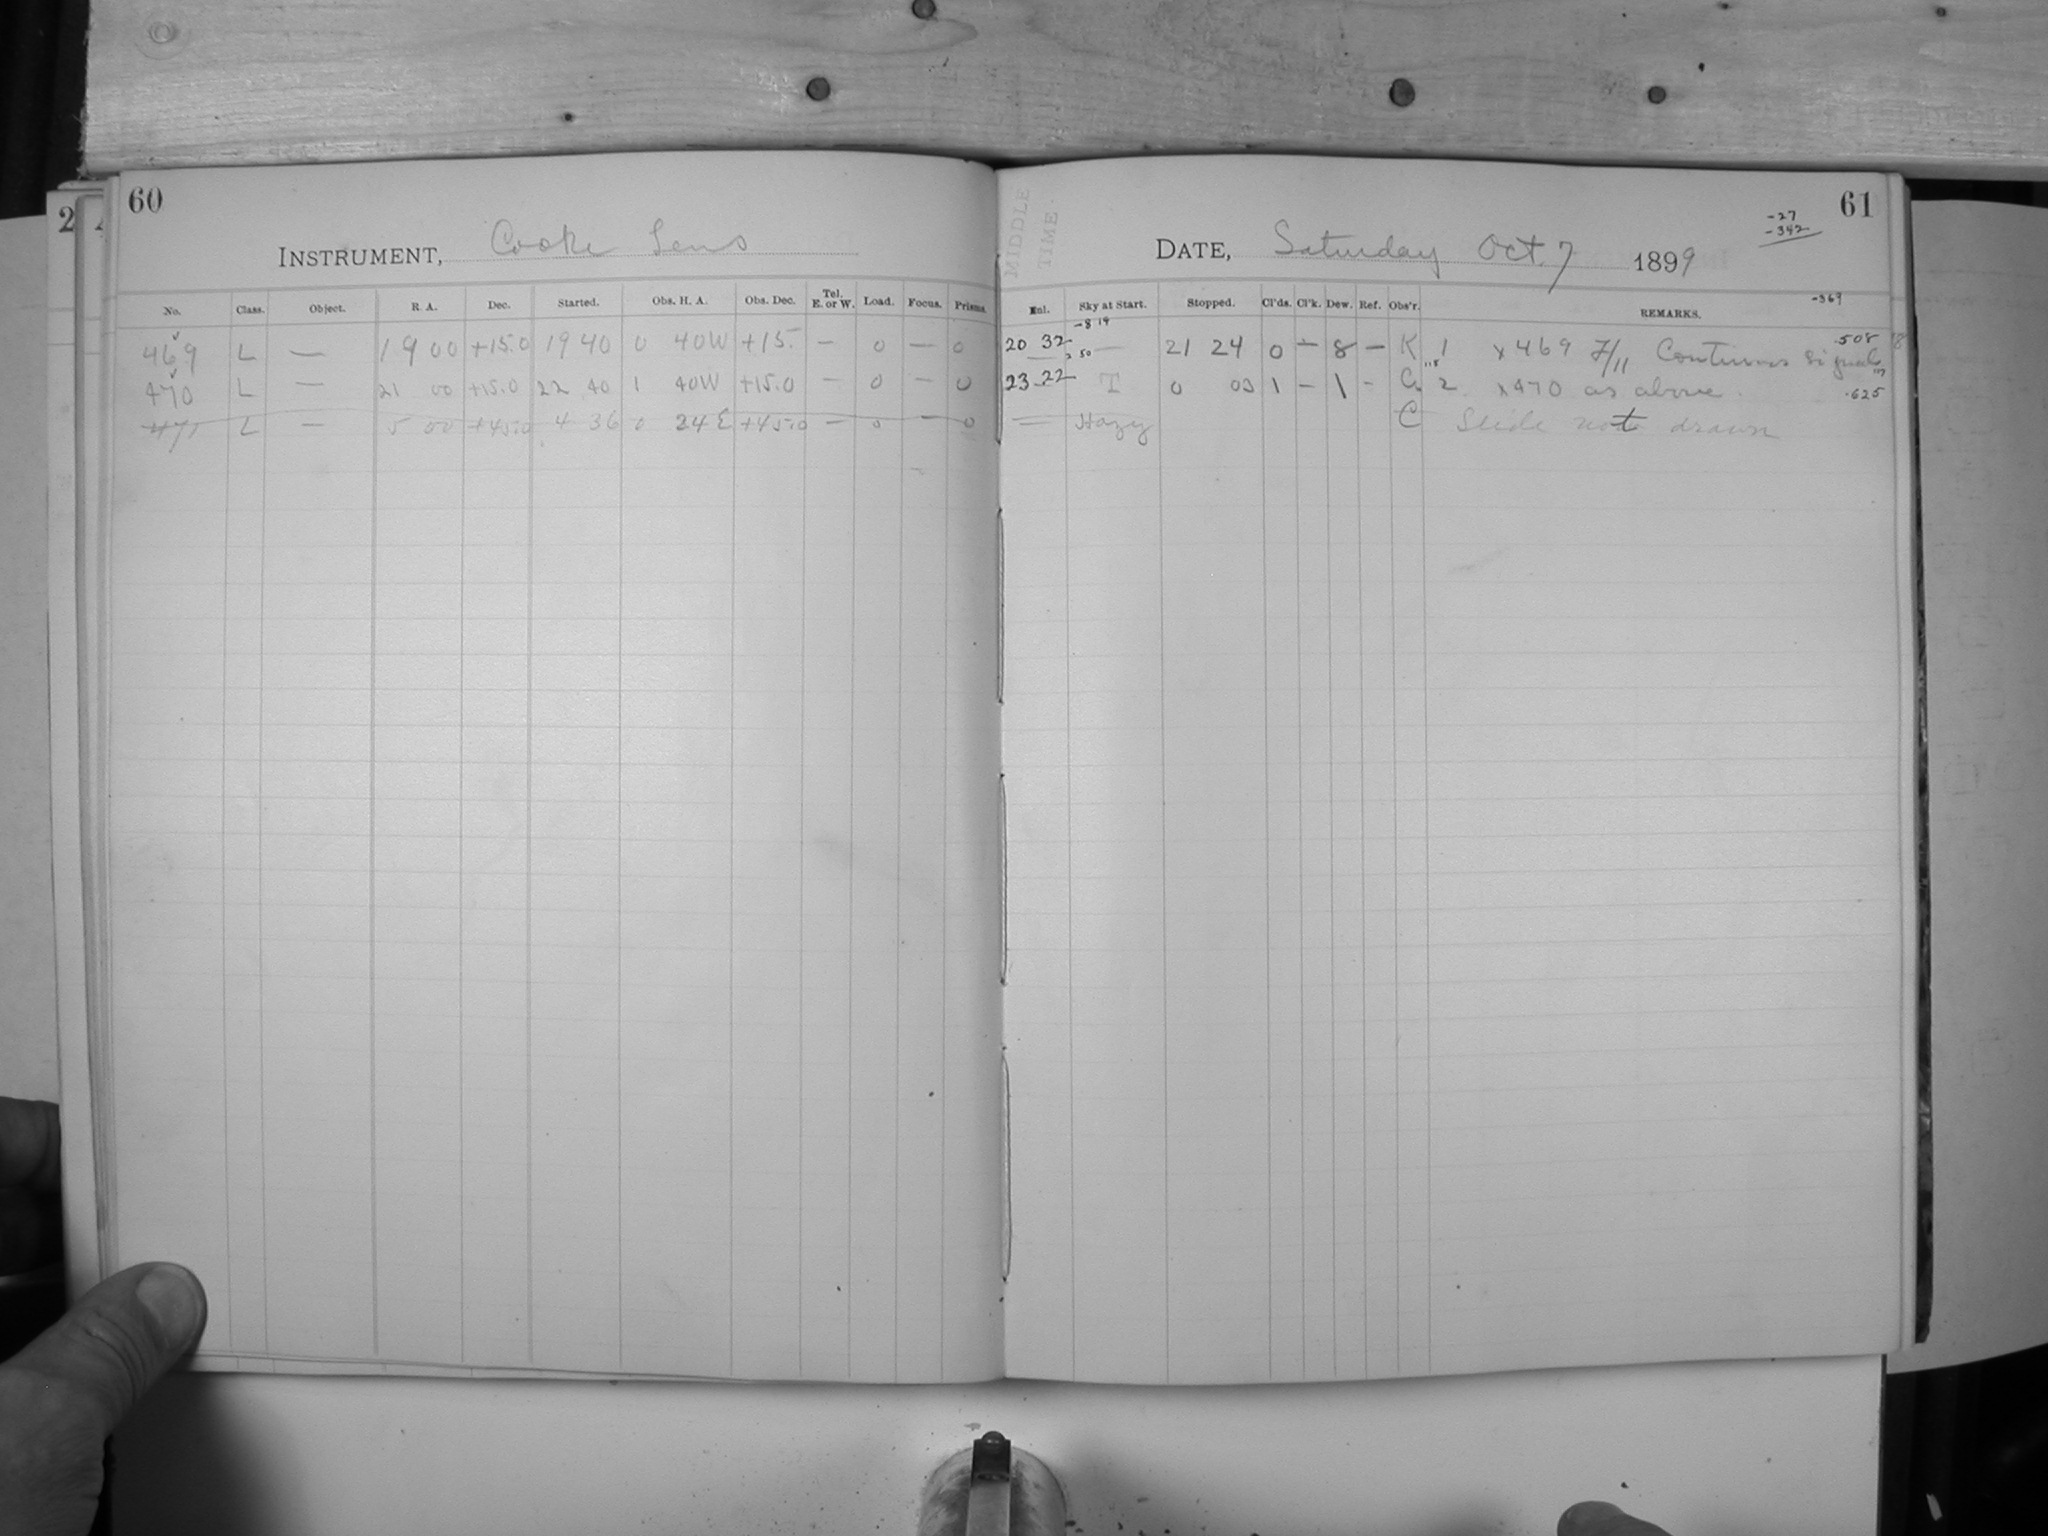 60
INSTRUMENT, Cooke Lens
No. Class. Object. R. A. Dec. Started. Obs. H. A. Obs. Dec. Tel. E. or W. Load. Focus. Prisms.
469 L — 19 00 +15.0 19 40 0 40W +15. — 0 — 0
470 L — 21 00 +15.0 22 40 1 40W +15.0 — 0 — 0
471 L — 5 00 +45.0 4 36 0 24E +45.0 — 0 — 0
61
MIDDLE
TIME.
-27
-342
DATE, Saturday Oct. 7 1899
-369
Sky at Start. Stopped. Cl'ds. Cl'k. Dew. Ref. Obs'r. REMARKS.
-8 19
20 32 — 21 24 0 — 8 — K 1 x469 F/11 Continuous signals .508
2 50
23 22 T 0 03 1 — 1 - 2. x470 as above. .625
— Hazy C Slide not drawn
2